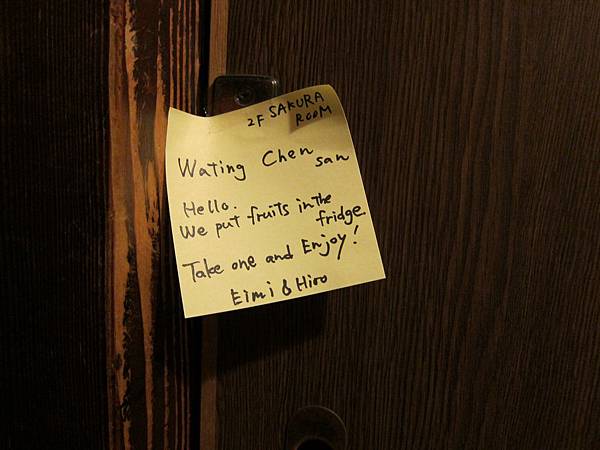 2F SAKURA
ROOM
Wating Chen san
Hello.
We put fruits in the
fridge.
Take one and Enjoy!
Eimi & Hiro